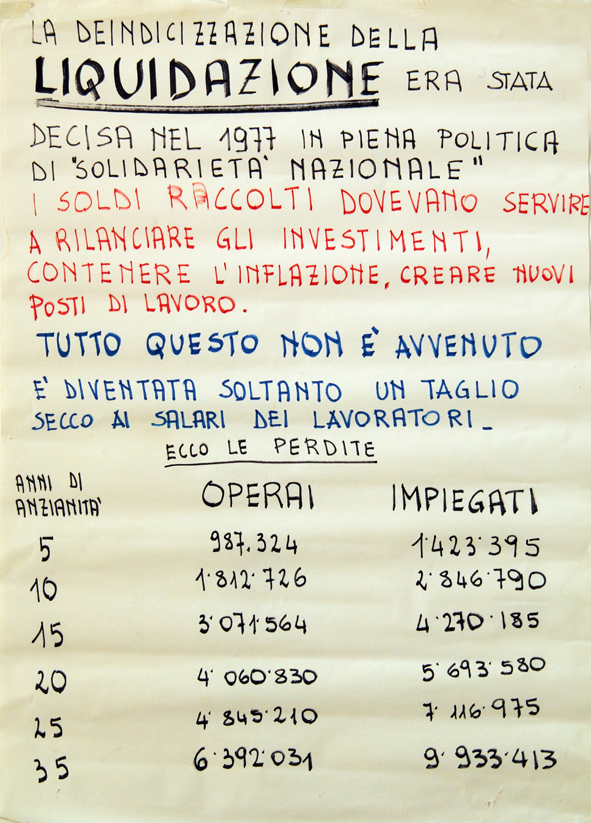 LA DEINDICIZZAZIONE DELLA
LIQUIDAZIONE ERA STATA
DECISA NEL 1977 IN PIENA POLITICA
DI "SOLIDARIETA' NAZIONALE"
I SOLDI RACCOLTI DOVEVANO SERVIRE
A RILANCIARE GLI INVESTIMENTI,
CONTENERE L'INFLAZIONE, CREARE NUOVI
POSTI DI LAVORO.
TUTTO QUESTO NON E' AVVENUTO
E' DIVENTATA SOLTANTO UN TAGLIO
SECCO AI SALARI DEI LAVORATORI_
ECCO LE PERDITE
ANNI DI
ANZIANITA' OPERAI IMPIEGATI
5 987.324 1'423'395
10 1'812'726 2'846'790
15 3'071'564 4'270'185
20 4'060'830 5'693'580
25 4'845'210 7'116'975
35 6'392'031 9'933'413